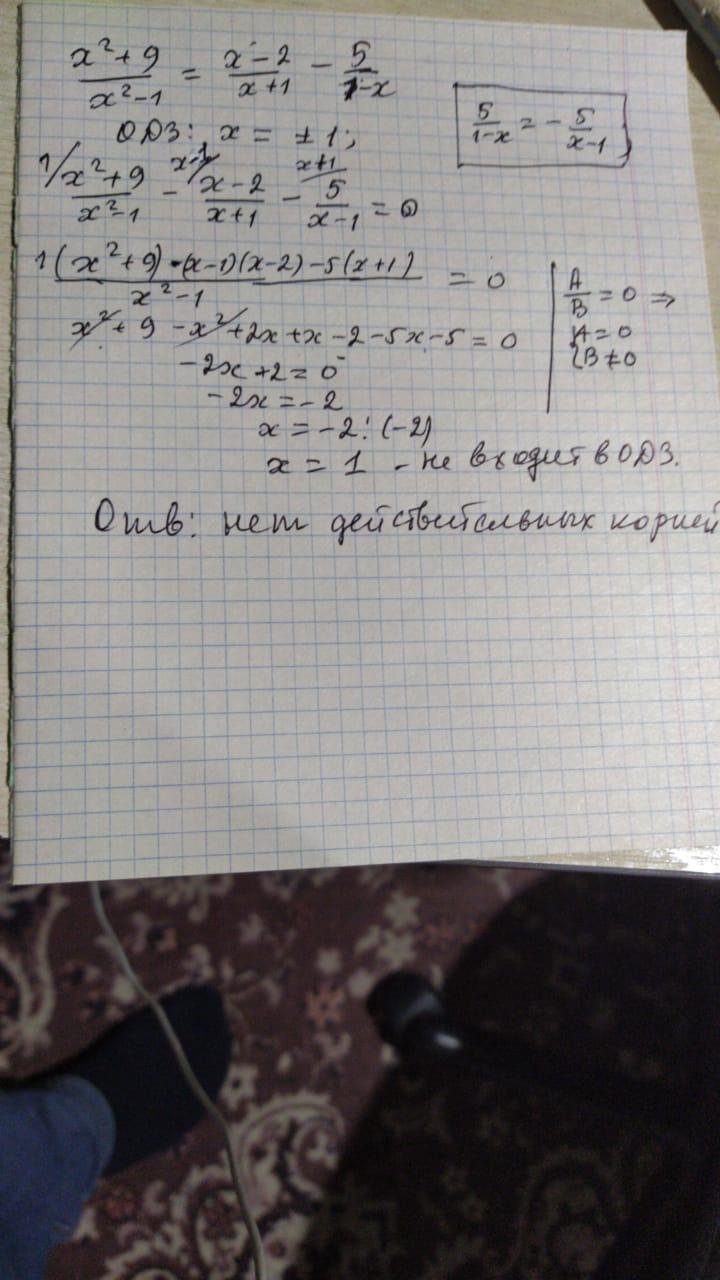 x²+9/x²-1 = x-2/x+1 - 5/1-x
5/1-x = - 5/x-1
ОДЗ: x = ±1;
1/ x²+9/x²-1 - x-1/ x-2/x+1 - x+1/ 5/x-1 = 0
1(x²+9) - (x-1)(x-2) - 5(x+1)/x²-1 = 0
A/B = 0 ⇒
{A = 0
{B ≠ 0
x² + 9 - x² + 2x + x - 2 - 5x - 5 = 0
-2x + 2 = 0
-2x = -2
x = -2 : (-2)
x = 1 - не входит в ОДЗ.
Отв: нет действительных корней